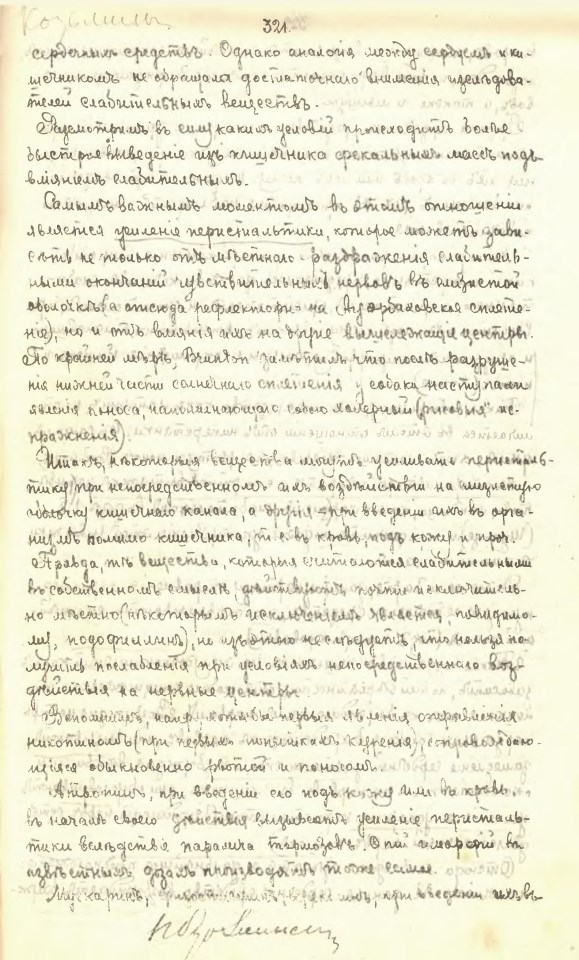 321.
сердечныхъ средствъ. Однако аналогія между сердцемъ и ки-
шечникомъ не обращала достаточнаго вниманія изслѣдова-
телей слабительныхъ веществъ.
Разсмотримъ, въ силу какихъ условій происходитъ болѣе
быстрое выведеніе изъ кишечника фекальныхъ массъ подъ
вліяніемъ слабительныхъ.
Самымъ важнымъ моментомъ въ этомъ отношеніи
является усиленіе перистальтики, которое можетъ зави-
сѣть не только отъ мѣстнаго раздраженія слабитель-
ными окончаній чувствительныхъ нервовъ въ слизистой
оболочкѣ (а отсюда рефлекторно на Ауэрбаховское сплете-
ніе), но и отъ вліянія ихъ на другіе вышележащіе центры.
По крайней мѣрѣ, Brunton замѣтилъ что послѣ разруше-
нія нижней части солнечнаго сплетенія у собаки наступали
явленія поноса, напоминающаго собою холерный (рисовыя ис-
пражненія).
Итакъ, нѣкоторыя вещества могутъ усиливать персталь-
тику при непосредственномъ ихъ воздѣйствіи на слизистую
оболочку кишечнаго канала, а другія при введеніи ихъ въ орга-
низмъ помимо кишечника, т. е. въ кровь, подъ кожу и проч.
Правда, тѣ вещества, которыя считаются слабительными
въ собственномъ смыслѣ, дѣйствуютъ почти исключитель-
но мѣстно (нѣкоторымъ исключеніемъ является, повидимо-
му, подофиллинъ), но изъ этого не слѣдуетъ, что нельзя по-
лучить послабленія при условіяхъ непосредственнаго воз-
дѣйствія на нервные центры.
Вспомнимъ, напр., хотя бы первыя явленія отравленія
никотиномъ (при первыхъ попыткахъ куренія), сопровождаю-
щіяся обыкновенно рвотой и поносомъ.
Атропинъ, при введеніи его подъ кожу или въ кровь,
въ началѣ своего дѣйствія вызываетъ усиленіе персталь-
тики вслѣдствіе паралича тормозовъ. Опій и морфій въ
извѣстныхъ дозахъ производятъ тоже самое.
Мускаринъ, при введеніи ихъ въ